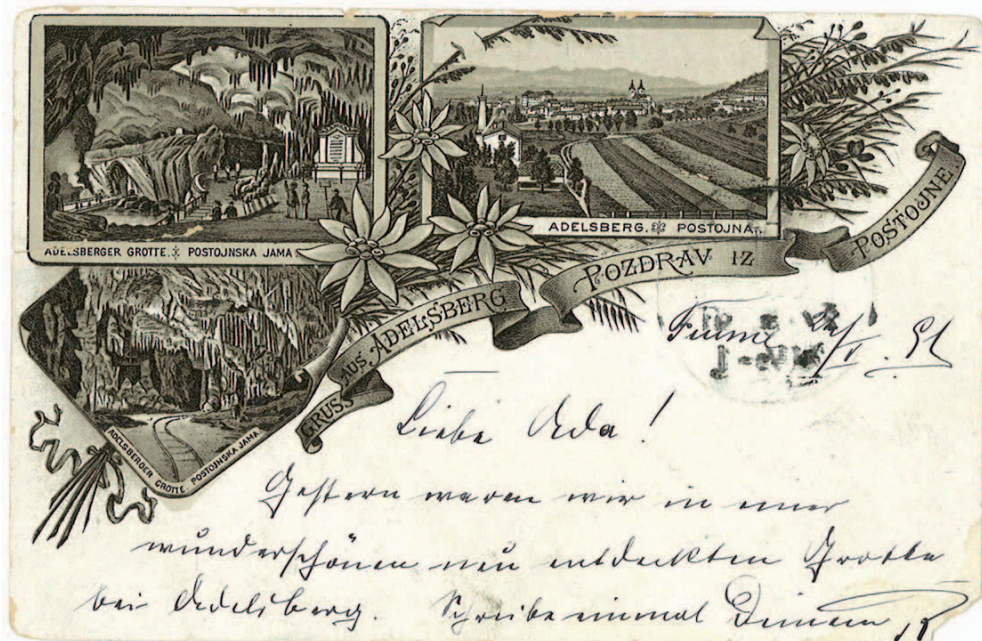 ADELSBERGER GROTTE. POSTOJNSKA JAMA.
ADELSBERG. POSTOJNA.
ADELSBERGER GROTTE. POSTOJNSKA JAMA.
GRUSS AUS ADELSBERG POZDRAV IZ POSTOJNE.
Fiume
Liebe Ada!
Gestern waren wir in einer
wunderschönen neu entdeckten Grotte
bei Adelsberg. Schreibe einmal Deinem